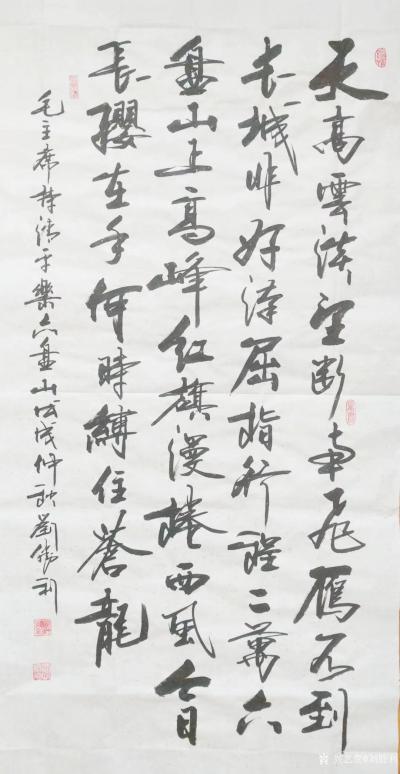 天高雲淡望断南飛雁不到
长城非好漢屈指行程二萬六
盘山上高峰红旗漫捲西風今日
長纓在手何時縛住蒼龍
毛主席詩清平樂六盘山戊戌仲秋劉勝利